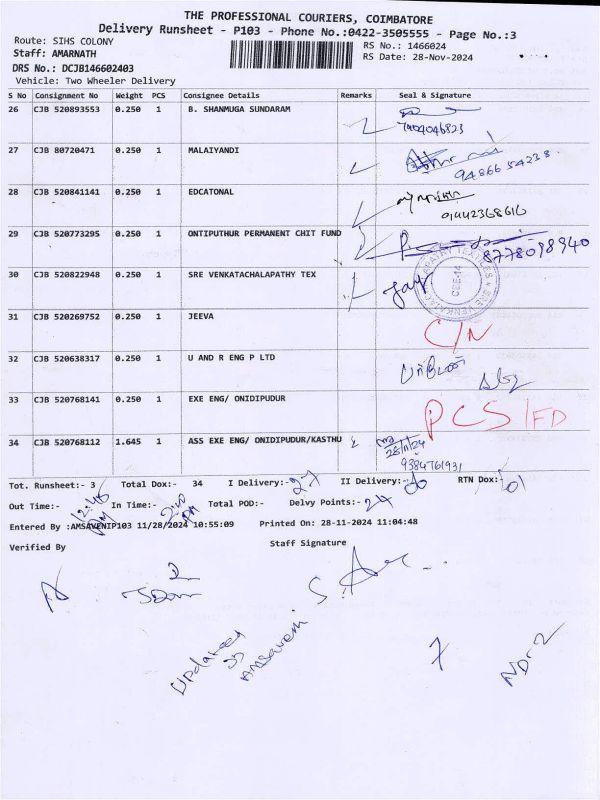 THE PROFESSIONAL COURIERS, COIMBATORE
Delivery Runsheet - P103 - Phone No.:0422-3505555 - Page No.:3
Route: SIHS COLONY
RS No.: 1466024
Staff: AMARNATH
RS Date: 28-Nov-2024
DRS No.: DCJB146602403
Vehicle: Two Wheeler Delivery
S No Consignment No Weight PCS Consignee Details Remarks Seal & Signature
26 CJB 520893553 0.250 1 B. SHANMUGA SUNDARAM
27 CJB 80720471 0.250 1 MALAIYANDI
9486654238
28 CJB 520841141 0.250 1 EDCATONAL
29 CJB 520773295 0.250 1 ONTIPUTHUR PERMANENT CHIT FUND
8778098940
30 CJB 520822948 0.250 1 SRE VENKATACHALAPATHY TEX
31 CJB 520269752 0.250 1 JEEVA
C/N
32 CJB 520638317 0.250 1 U AND R ENG P LTD
33 CJB 520768141 0.250 1 EXE ENG/ ONIDIPUDUR
PCS/FD
34 CJB 520768112 1.645 1 ASS EXE ENG/ ONIDIPUDUR/KASTHU
28/11/24
9384761931
Tot. Runsheet:- 3 Total Dox:- 34 I Delivery:- 27 II Delivery:- RTN Dox:- 01
Out Time:- In Time:- Total POD:- Delvy Points:- 24
Entered By :AMSAVENIP103 11/28/2024 10:55:09 Printed On: 28-11-2024 11:04:48
Verified By
Staff Signature
Updated
Amsaveni
7
ND-2